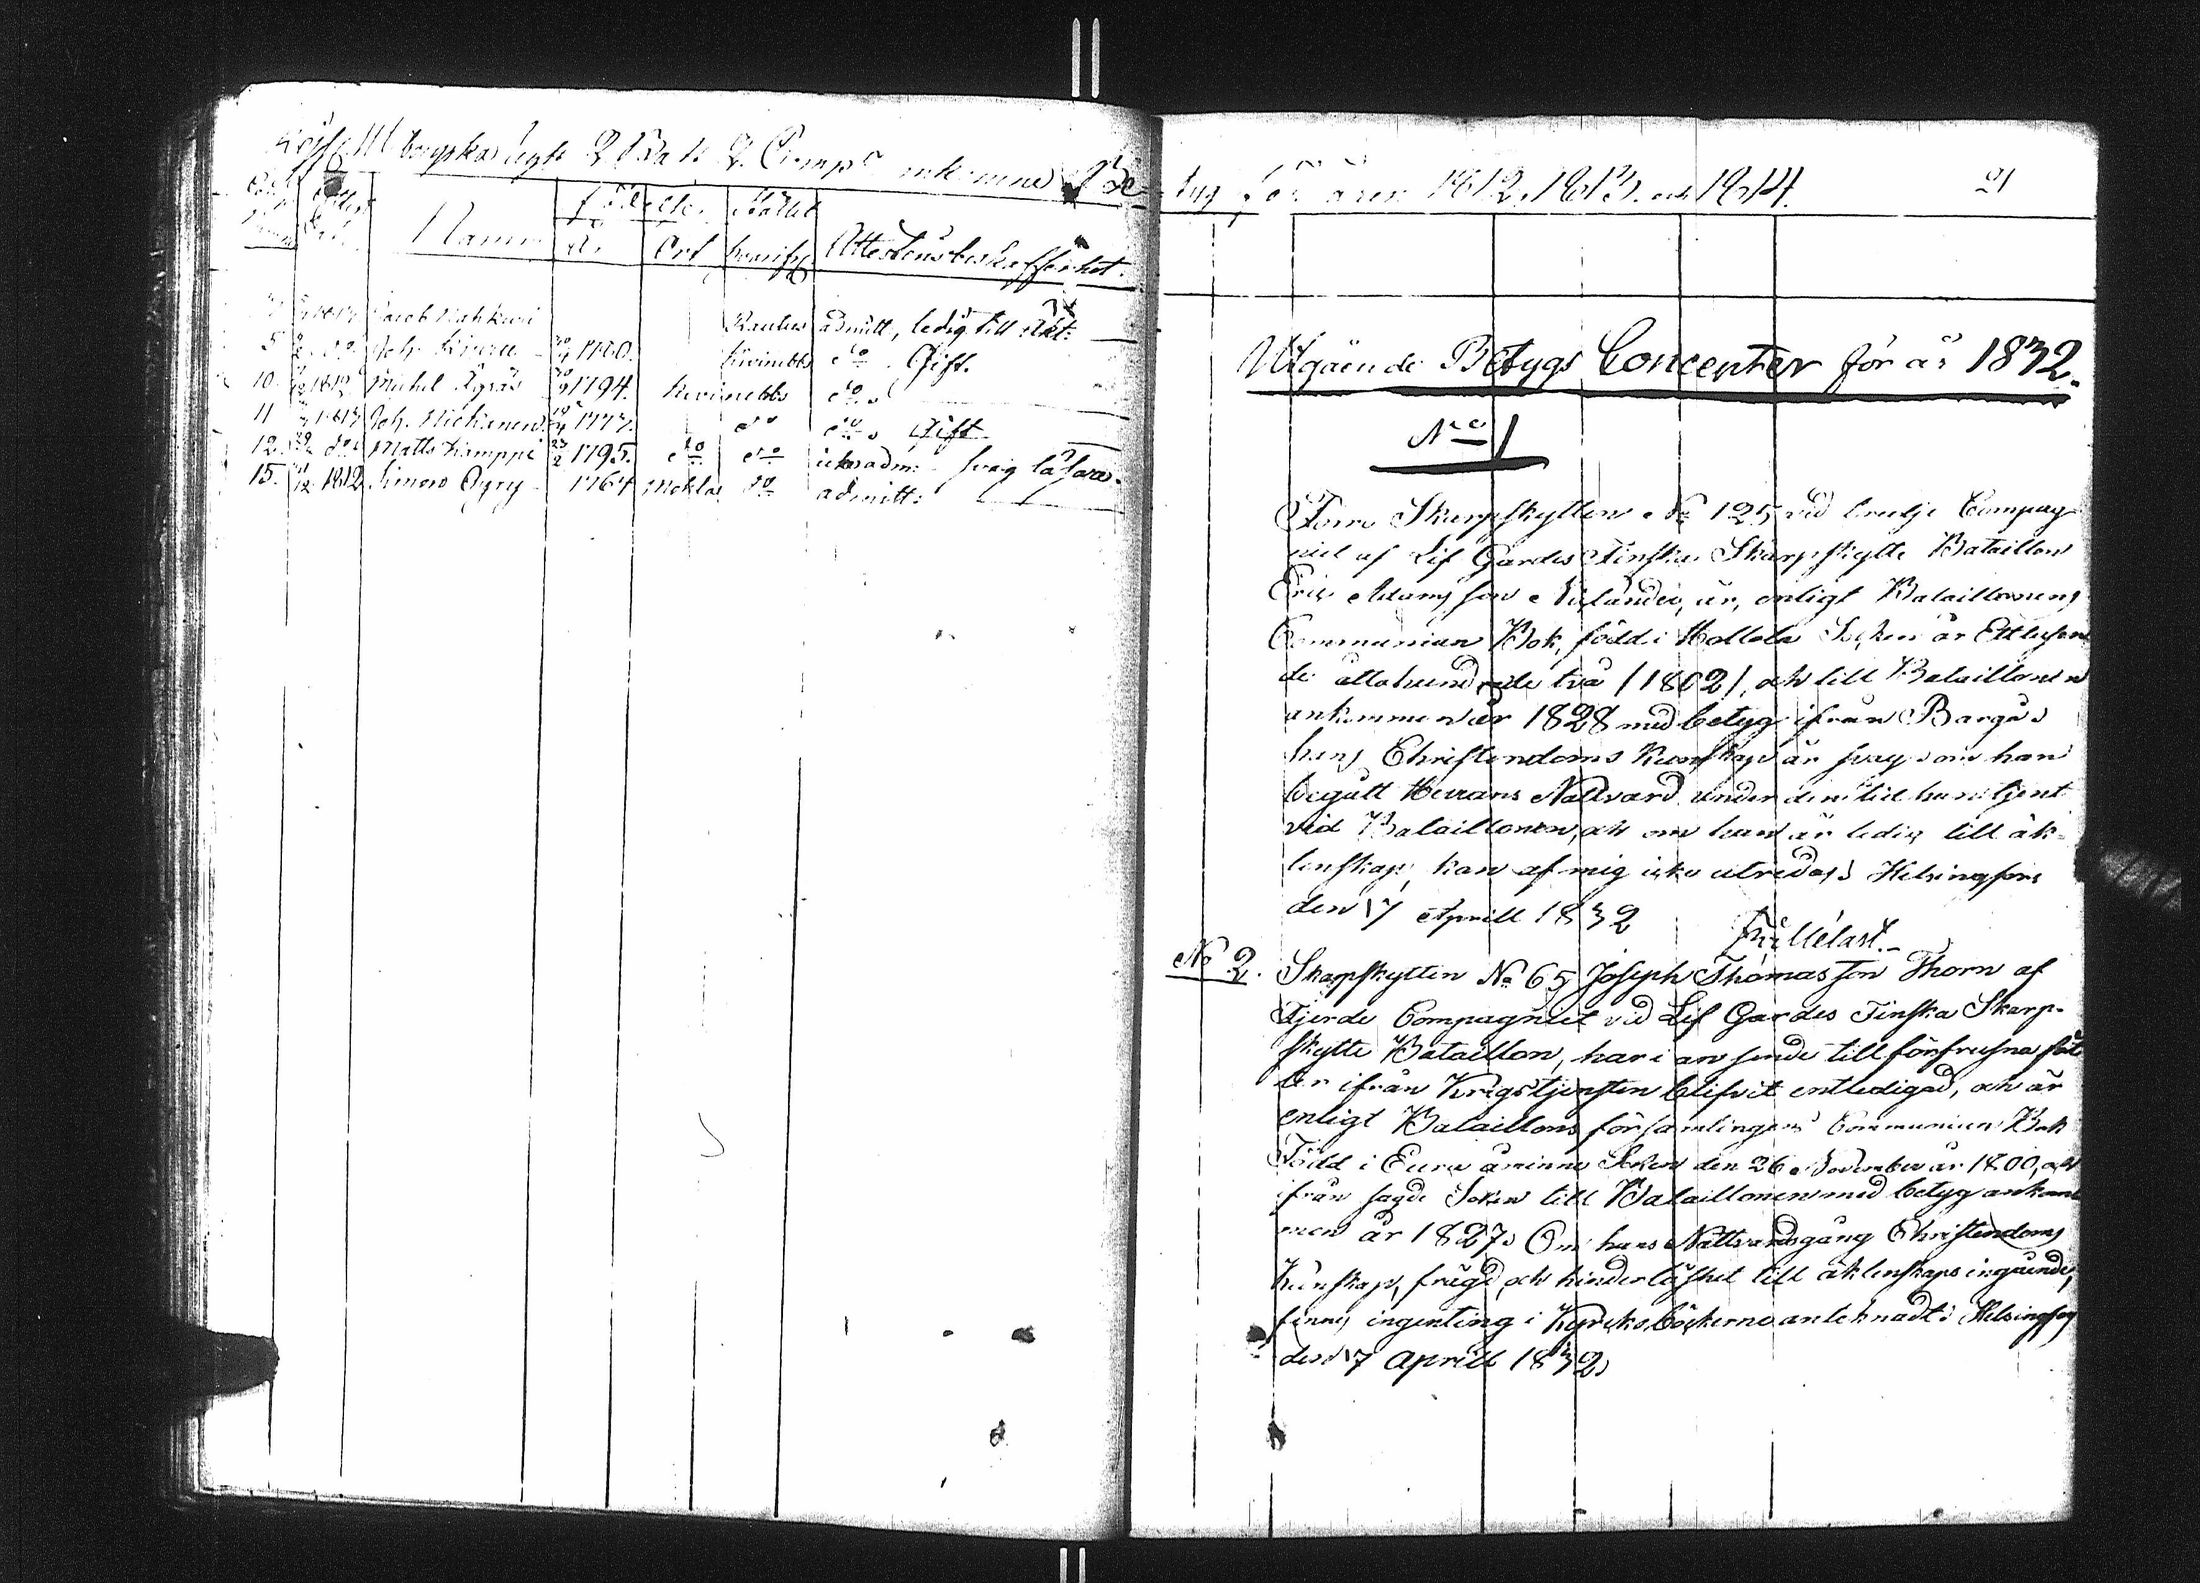 bergska Regts 2 Bat: 2. Comp: inkomne Betyg för åren 1812, 1813. och 1814.
21
Namn
Födelse
Stället
år
Ort
Attestens beskaffenhet.
Jacob
Rautus
admitt, ledig till äkt:
5
Joh.
1780.
Kivinebb
do Gift.
10.
1812
Michel Ägräs
1794.
Kivinebb
do
11
Joh.
1777.
do
do Gift
12.
do
Matts Kamppi
23/2
1795.
do
do
icke adm: svag läsare.
15.
1812
Simon
1764
Mohla
do
admitt:
Utgående Betygs Concepter för år 1832.
No 1
Förre Skarpskytten No 125 vid tredje Compag
niet af Lif Gardes Finska Skarpskytte Bataillon
Eric Adamsson Nylander, är, enligt Bataillonens
Communion Bok, född i Hollola Socken år Ettusen
de åttahundrade två /1802/, och till Bataillonen
ankommen år 1828 med betyg ifrån Borgå;
hans Christendoms Kunskap är svag; om han
begått Herrans Nattvard under den tid han tjent
vid Bataillonen, och om han är ledig till äk-
tenskap, kan af mig icke utredas; Helsingfors
den 17 Aprill 1832
No 2.
Skarpskytten No 65 Joseph Thomasson Thorn af
Fjerde Compagniet vid Lif Gardes Finska Skarp-
skytte Bataillon, har i anseende till förfrusna föt
ter ifrån Krigstjensten blifvit entledigad, och är
enligt Bataillons församlingens Communion Bok
Född i Eura åminne Soken den 26 November år 1800, och
ifrån sagde Soken till Bataillonen med betyg ankom
men år 1827; Om hans Nattvardsgång Christendoms
Kunskap, frägd och hinderlöshet till äktenskaps ingående,
finnes ingenting i Kyrckoböckerne antecknadt; Helsingfors
den 17 Aprill 1832